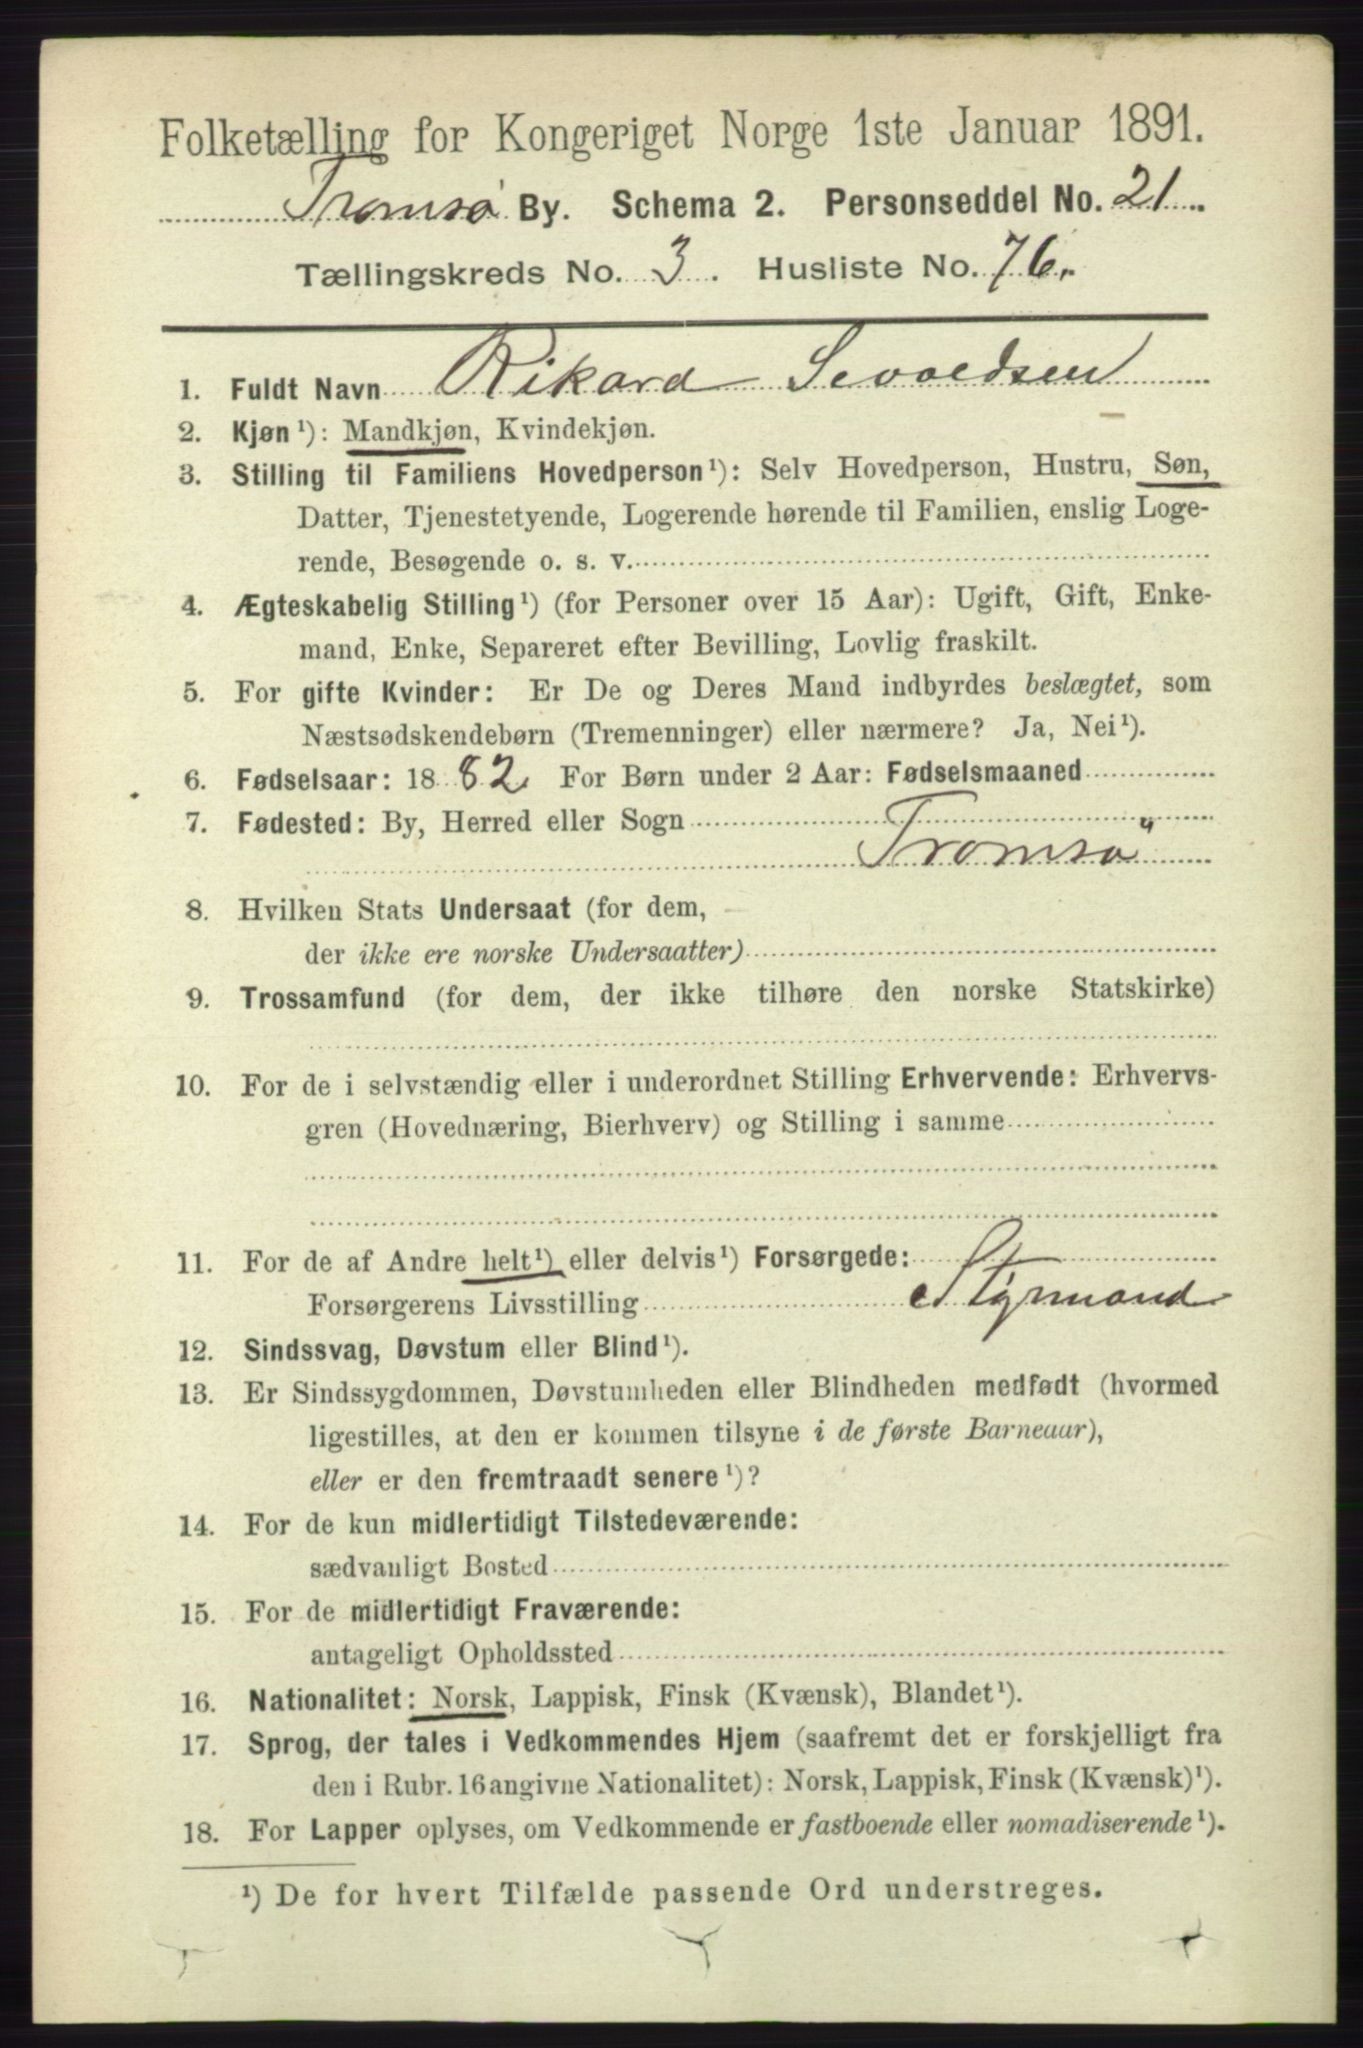 Folketælling for Kongeriget Norge 1ste Januar 1891.
Tromsø By. Schema 2. Personseddel No. 21
Tællingskreds No. 3. Husliste No. 76.
1. Fuldt Navn Rikard Sevoldsen
2. Kjøn¹): Mandkjøn, Kvindekjøn.
3. Stilling til Familiens Hovedperson¹): Selv Hovedperson, Hustru, Søn,
Datter, Tjenestetyende, Logerende hørende til Familien, enslig Loge-
rende, Besøgende o. s. v.
4. Ægteskabelig Stilling¹) (for Personer over 15 Aar): Ugift, Gift, Enke-
mand, Enke, Separeret efter Bevilling, Lovlig fraskilt.
5. For gifte Kvinder: Er De og Deres Mand indbyrdes beslægtet, som
Næstsødskendebørn (Tremenninger) eller nærmere? Ja, Nei¹).
6. Fødselsaar: 1882. For Børn under 2 Aar: Fødselsmaaned
7. Fødested: By, Herred eller Sogn
Tromsö
8. Hvilken Stats Undersaat (for dem,
der ikke ere norske Undersaatter)
9. Trossamfund (for dem, der ikke tilhøre den norske Statskirke)
10. For de i selvstændig eller i underordnet Stilling Erhvervende: Erhvervs-
gren (Hovednæring, Bierhverv) og Stilling i samme
11. For de af Andre helt¹) eller delvis¹) Forsørgede:
Forsørgerens Livsstilling Styrmand
12. Sindssvag, Døvstum eller Blind¹).
13. Er Sindssygdommen, Døvstumheden eller Blindheden medfødt (hvormed
ligestilles, at den er kommen tilsyne i de første Barneaar),
eller er den fremtraadt senere¹)?
14. For de kun midlertidigt Tilstedeværende:
sædvanligt Bosted
15. For de midlertidigt Fraværende:
antageligt Opholdssted
16. Nationalitet: Norsk, Lappisk, Finsk (Kvænsk), Blandet¹).
17. Sprog, der tales i Vedkommendes Hjem (saafremt det er forskjelligt fra
den i Rubr. 16 angivne Nationalitet): Norsk, Lappisk, Finsk (Kvænsk)¹).
18. For Lapper oplyses, om Vedkommende er fastboende eller nomadiserende¹).
¹) De for hvert Tilfælde passende Ord understreges.